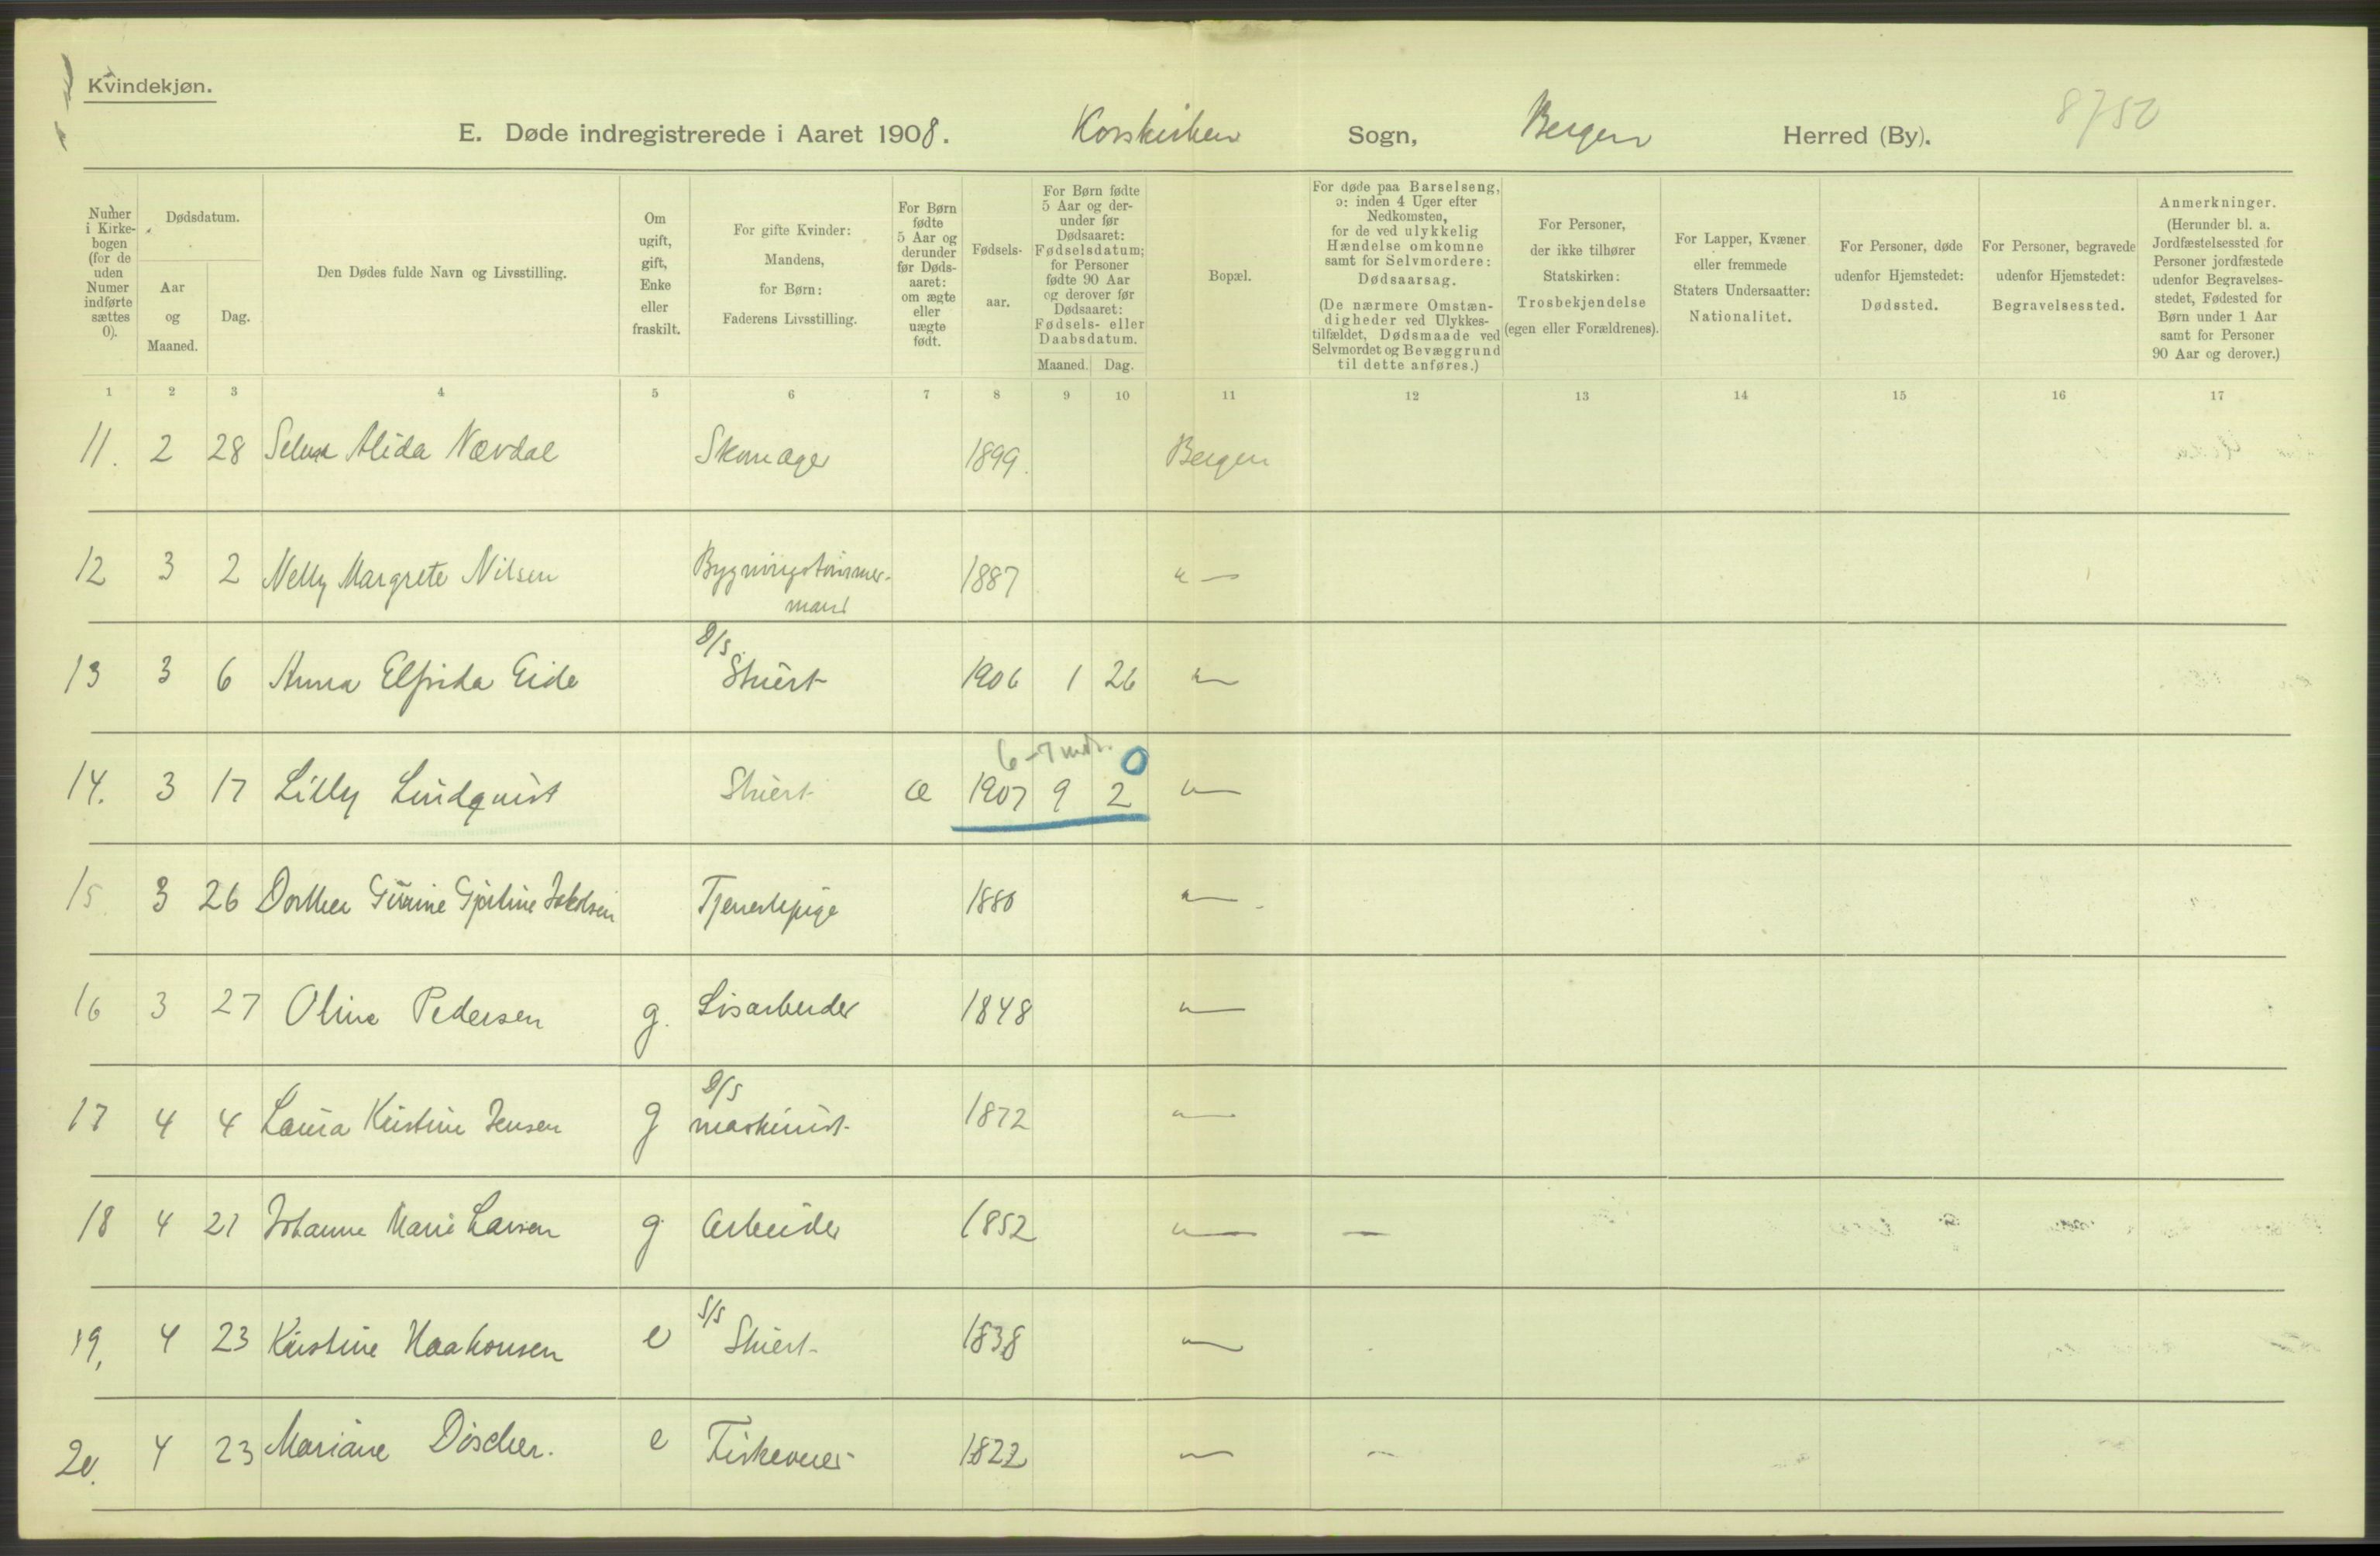 Kvindekjøn.
E. Døde indregistrerede i Aaret 1908. Korskirken Sogn, Bergen Herred (By). 8750
Numer i Kirke-bogen (for de uden Numer indførte sættes 0).
Dødsdatum.
Aar og Maaned.
Dag.
Den Dødes fulde Navn og Livsstilling.
Om ugift, gift, Enke eller fraskilt.
For gifte Kvinder: Mandens, for Børn: Faderens Livsstilling.
For Børn fødte 5 Aar og derunder før Døds-aaret: om ægte eller uægte født.
Fødsels-aar.
For Børn fødte 5 Aar og der-under før Dødsaaret: Fødselsdatum; for Personer fødte 90 Aar og derover før Dødsaaret: Fødsels- eller Daabsdatum.
Maaned. Dag.
Bopæl.
For døde paa Barselseng, ɔ: inden 4 Uger efter Nedkomsten, for de ved ulykkelig Hændelse omkomne samt for Selvmordere: Dødsaarsag. (De nærmere Omstæn-digheder ved Ulykkes-tilfældet, Dødsmaade ved Selvmordet og Bevæggrund til dette anføres.)
For Personer, der ikke tilhører Statskirken: Trosbekjendelse (egen eller Forældrenes).
For Lapper, Kvæner eller fremmede Staters Undersaatter: Nationalitet.
For Personer, døde udenfor Hjemstedet: Dødssted.
For Personer, begravede udenfor Hjemstedet: Begravelsessted.
Anmerkninger. (Herunder bl. a. Jordfæstelsessted for Personer jordfæstede udenfor Begravelses-stedet, Fødested for Børn under 1 Aar samt for Personer 90 Aar og derover.)
1 2 3 4 5 6 7 8 9 10 11 12 13 14 15 16 17
11. 2 28 Alida Nævdal Skomager 1899. Bergen
12 3 2 Nelly Margrete Nilsen Bygningstømmer-
mand 1887 " —
13 3 6 Anna Elfrida Eide D/S.
Stuert 1906 1 26 " —
6-7 mdr. 0
14. 3 17 Lilly Lindquist Stuert æ 1907 9 2 " —
15 3 26 Dorthea Jakobsen Tjenestepige 1880 " —
16 3 27 Oline Pedersen g. Løsarbeider 1848 " —
17 4 4 Laura Kristine Jensen g D/S
maskinist 1872 " —
18 4 21 Johanne Marie Larsen g Arbeider 1852 " — —
19, 4 23 Kristine Haakonsen e S/S
Stuert 1838 " —
20. 4 23 Mariane Discher. e Fiskeveier 1822 " — —